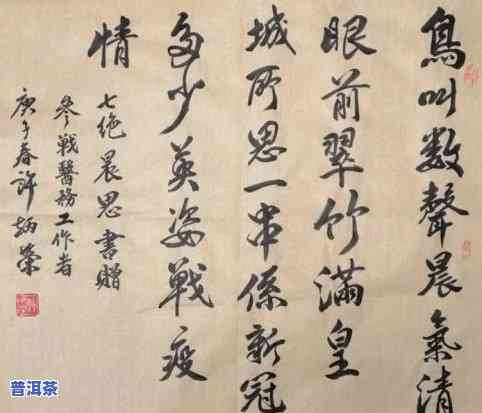 鳥叫数聲晨氣清
眼前翠竹滿皇
城所思一串係新冠
多少英姿戰疫
情
七绝晨思書贈
參戰醫務工作者
庚子春许炳榮
普洱茶